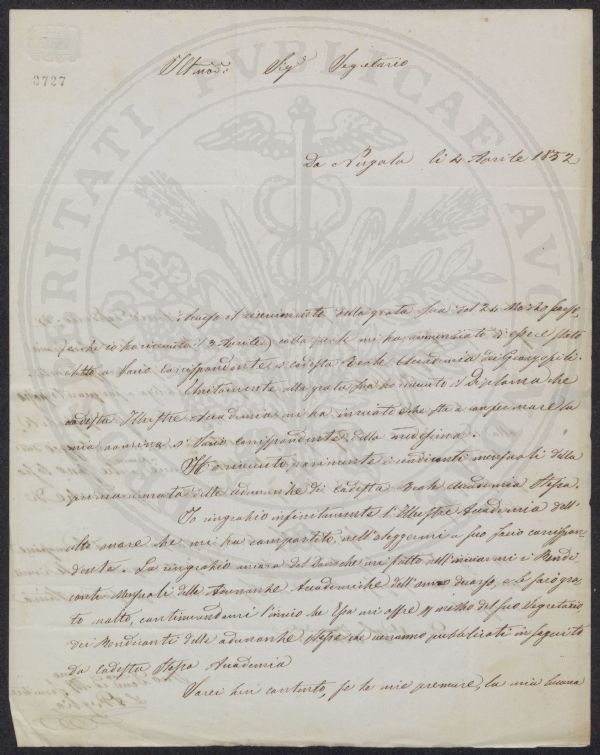 2727
Illmo: Sigr Segretario
Da Pergola li 4 Aprile 1852
Accuso il ricevimento della grata sua del 24 Marzo passo,
(che io ho ricevuto 3 Aprile) colla quale mi ha annunziato d'essere stato
eletto a Socio Corrispondente di codesta Reale Accademia dei Georgofili.
Unitamente alla grata sua ho ricevuto il Diploma che
codesta Illustre Accademia mi ha inviato che sta a confermare la
mia nomina di Socio corrispondente della medesima.
Ho ricevuto parimente i rendiconti mensuali della
prima annata delle adunanze di codesta Reale Accademia stessa.
Io ringrazio infinitamente l'Illustre Accademia dell'
alto onore che mi ha compartito nell'eleggermi a suo socio corrispon-
dente. La ringrazio ancora del Dono che mi fatto nell'inviarmi i Rendi-
conti Mensuali delle Adunanze Accademiche dell'anno decorso, e le sarò gra-
to molto, continuandomi l'invio che Essa mi offre per mezzo del suo Segretario
dei Rendiconti delle adunanze stesse che verranno pubblicati in seguito
da codesta stessa Accademia
Sarei ben contento, se le mie premure, la mia buona
VERITATI PUBLICAE